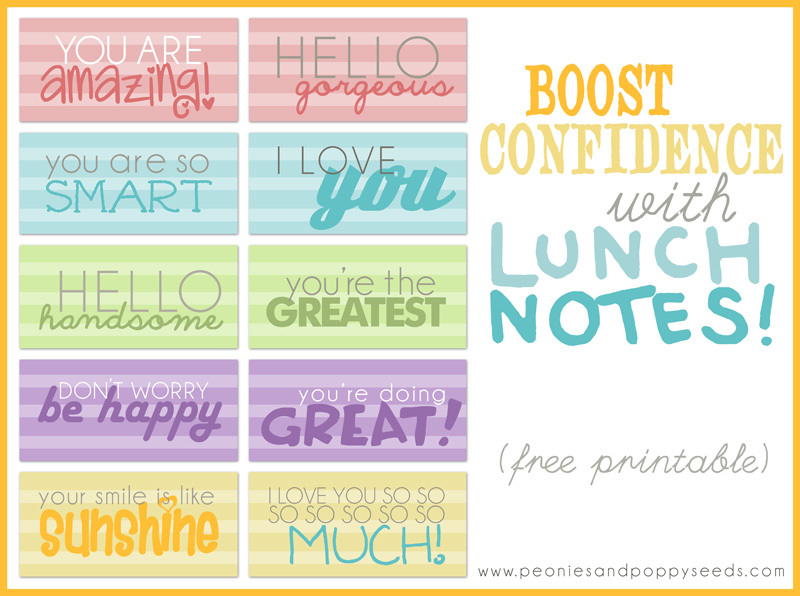 YOU ARE
amazing!
HELLO
gorgeous
you are so
SMART
I LOVE
you
HELLO
handsome
you're the
GREATEST
DON'T WORRY
be happy
you're doing
GREAT!
your smile is like
sunshine
I LOVE YOU SO SO
SO SO SO SO SO SO
MUCH!
BOOST
CONFIDENCE
with
LUNCH
NOTES!
(free printable)
www.peoniesandpoppyseeds.com